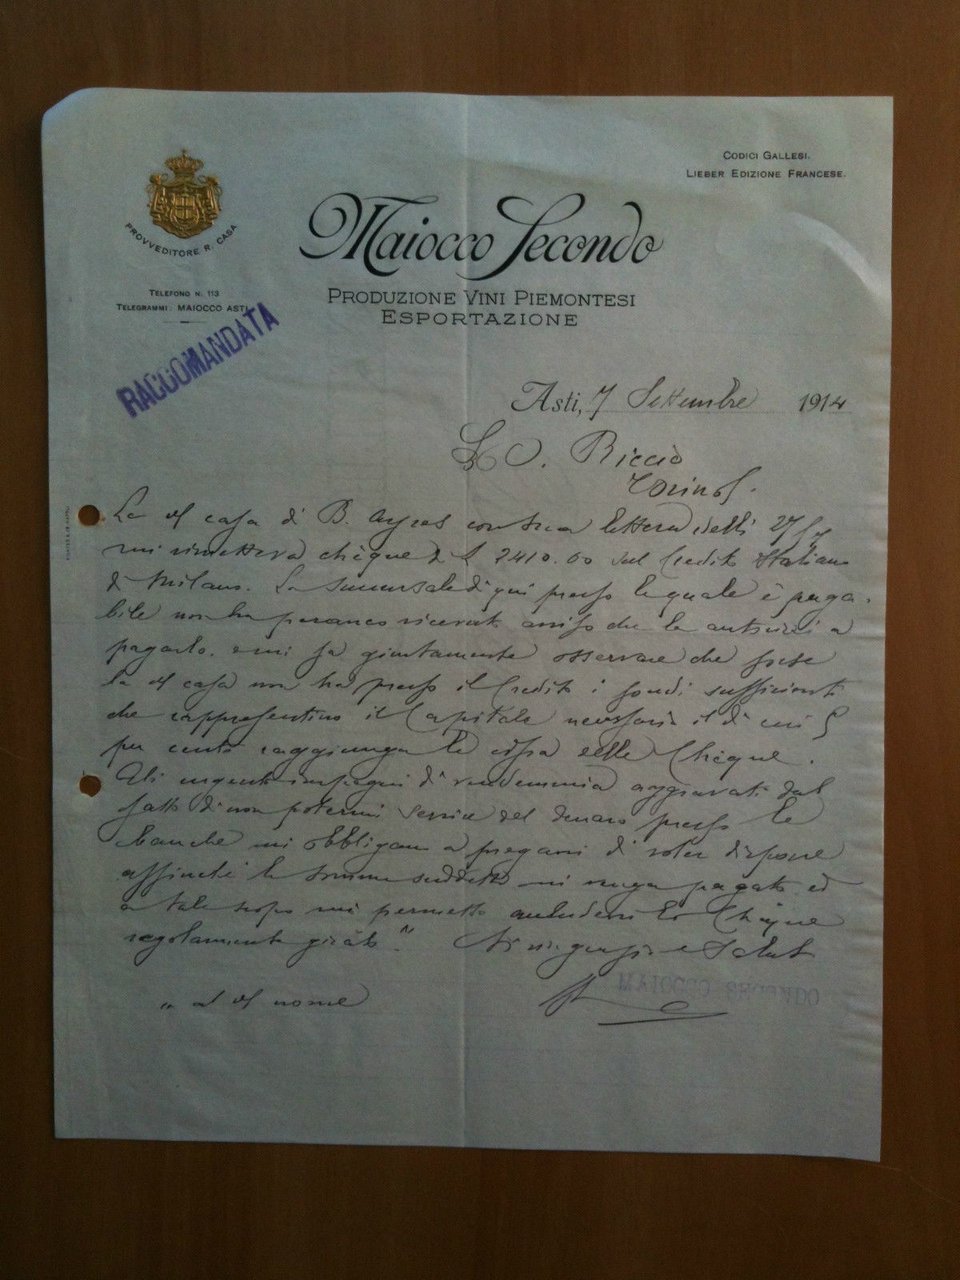 CODICI GALLESI.
LIEBER EDIZIONE FRANCESE.
PROVVEDITORE R. CASA
Maiocco Secondo
TELEFONO N. 113
TELEGRAMMI: MAIOCCO ASTI
PRODUZIONE VINI PIEMONTESI
ESPORTAZIONE
RACCOMANDATA
Asti, 7 Settembre 1914
O. Riccio
Torino
La casa di B. Ayres con sua lettera delli 27
mi rimetteva chèque di £ 2410.00 sul Credito Italiano
di Milano. La succursale di qui presso la quale è paga
bile non ha peranco ricevuto avviso che la autorizzi a
pagarlo. e mi fa giustamente osservare che forse
la casa non ha presso il Credito i fondi sufficienti
che rappresentino il Capitale necessario il di cui 5
per cento raggiunga la cifra dello Chèque.
Gli urgenti impegni di vendemmia aggravati dal
fatto di non potermi servire del denaro presso le
banche mi obbligano a pregarvi di voler disporre
affinchè la somma suddetta mi venga pagata ed
a tale scopo mi permetto accludervi lo Chèque
regolarmente girato " Vi ringrazio e Saluto
MAIOCCO SECONDO
" al nome